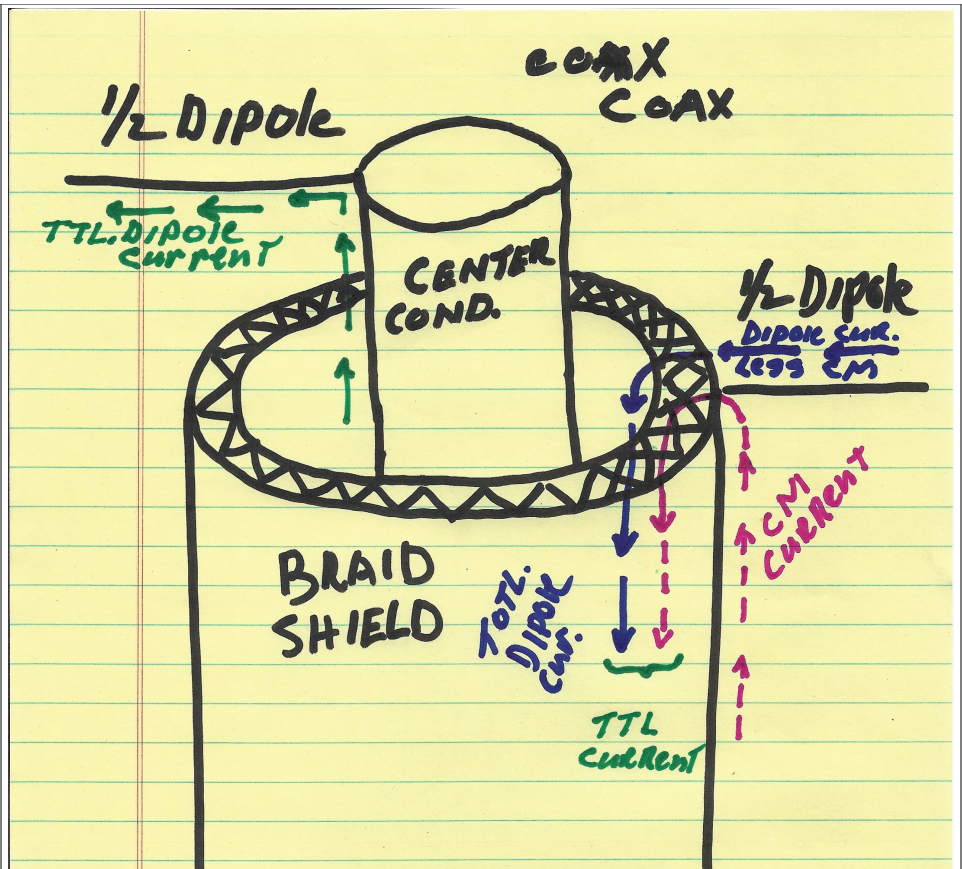 COAX
COAX
1/2 Dipole
TTL. Dipole
Current
CENTER
COND.
1/2 Dipole
Dipole cur.
Less CM
CM
CURRENT
BRAID
SHIELD
TOTL.
DIPOLE
Cur.
TTL
CURRENT